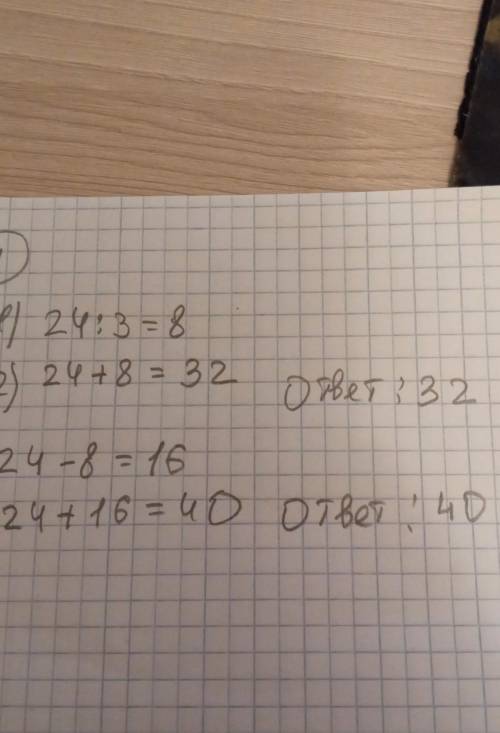 1) 24:3=8
2) 24+8=32 Ответ: 32
24-8=16
24+16=40 Ответ: 40